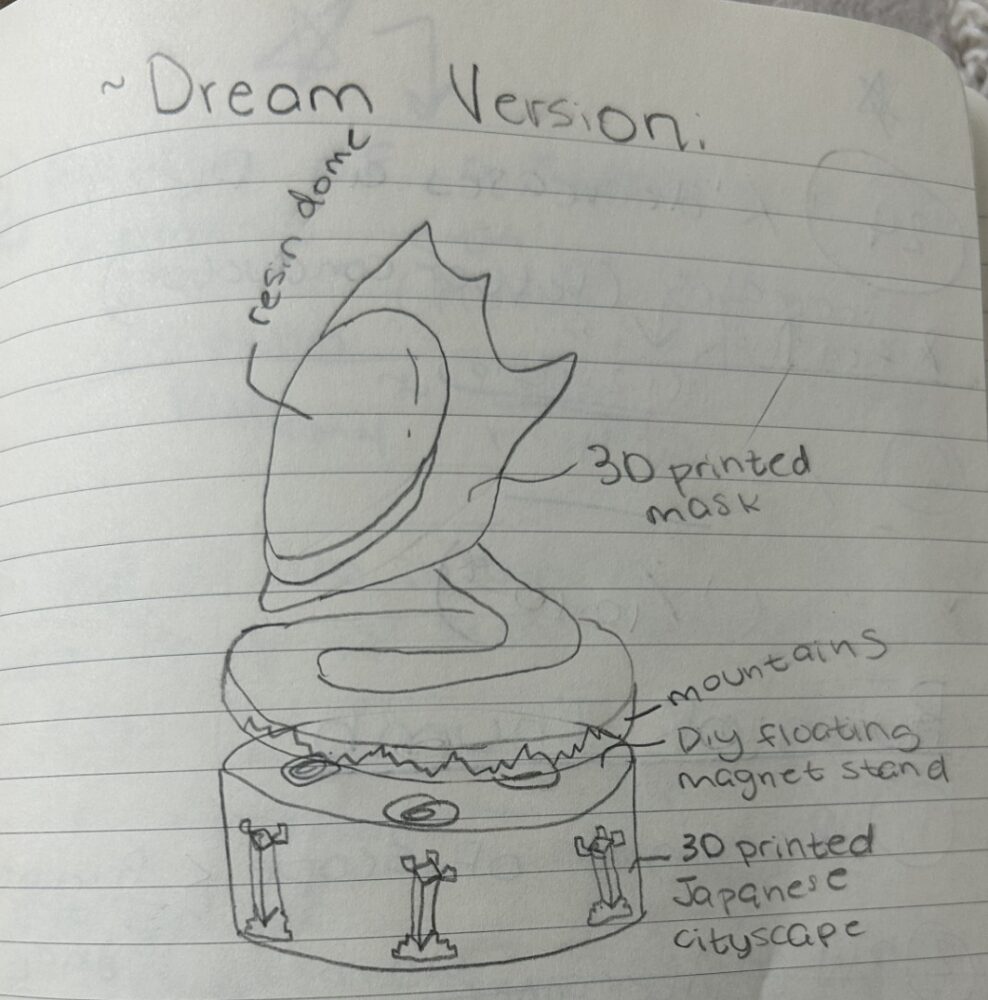 ~ Dream Version.
resin dome
3D printed
mask
mountains
Diy floating
magnet stand
3D printed
Japanese
cityscape